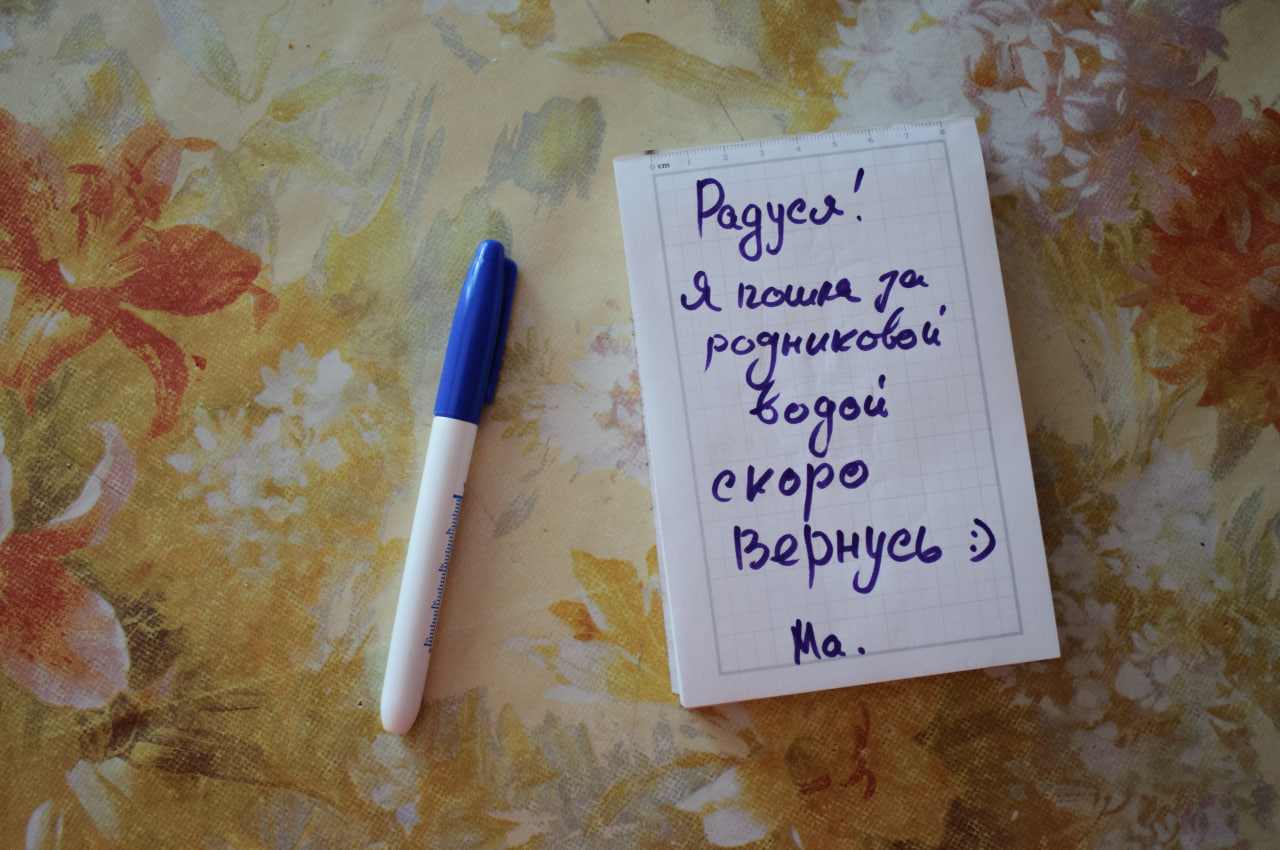 0 cm 1 2 3 4 5 6 7 8
Радуся!
Я пошла за
родниковой
водой
скоро
вернусь :)
Ма.